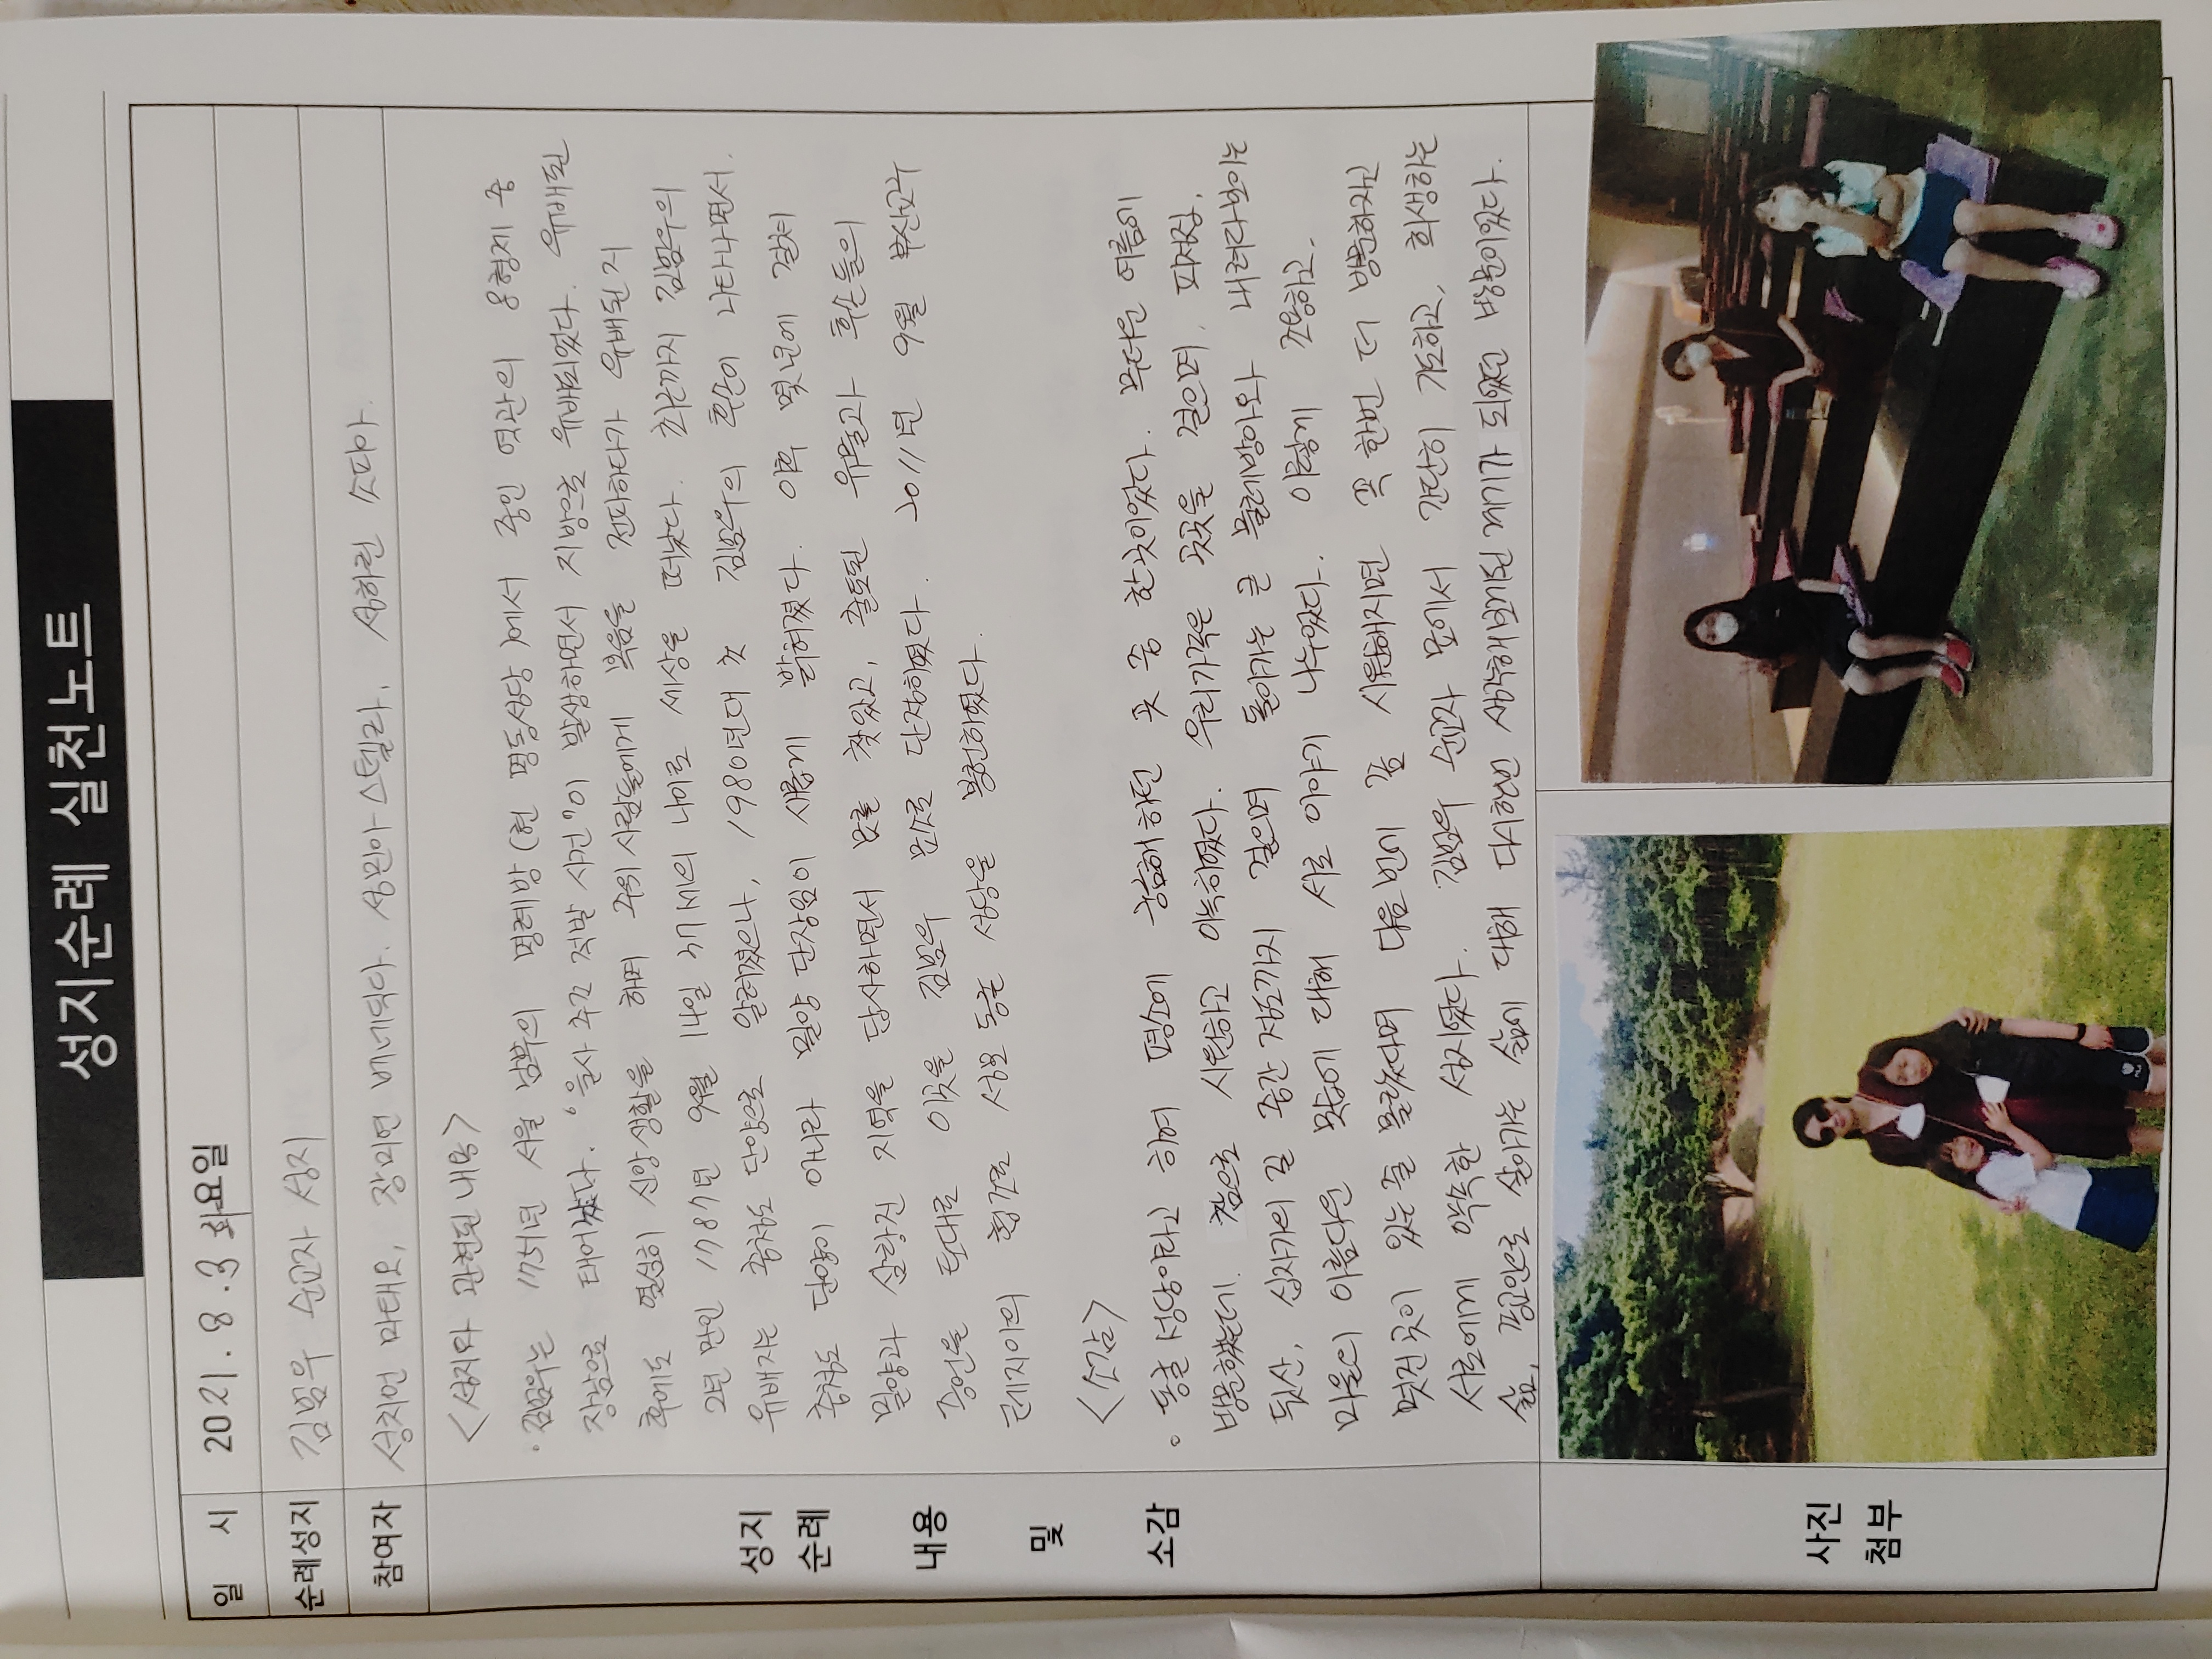 성지순례 실천노트
일 시 2021. 8. 3 화요일
순례성지 김범우 순교자 성지
참여자 성지언 마태오, 장미연 베네딕다. 성민아 스텔라, 성하린 소다아.
성지 순례 내용 및 소감
<성지와 관련된 내용>
· 김범우는 1751년 서울 남부의 명례방(현 명동성당)에서 중인 역관의 8형제 중
장남으로 태어났다. '을사 추조 적발 사건'이 발생하면서 지방으로 유배되었다. 유배된
후에도 열심히 신앙생활을 하며 주위 사람들에게 복음을 전파하다가 유배된 지
2년 만인 1787년 9월 14일 37세의 나이로 세상을 떠났다. 최근까지 김범우의
유배지는 충청도 단양으로 알려졌으나, 1980년대 초 김범우의 후손이 나타나면서.
충청도 단양이 아니라 밀양 단장임이 새롭게 밝혀졌다. 이후 몇년에 걸쳐
밀양과 삼랑진 지역을 답사하면서 묘를 찾았고, 출토된 유물과 후손들의
증언을 토대로 이곳을 김범우 묘소로 단정하였다. 2011년 9월 부산교구
레지아의 헌금으로 성모 동굴 성당을 봉헌하였다.
<소감>
∘ 동굴 성당이라고 하여 평소에 궁금해하던 곳 중 한곳이었다. 무더운 여름에
방문하였는데. 참으로 시원하고 아늑하였다. 우리가족은 곳곳을 걸으며, 피정집,
뒷산, 십자가의 길 중간 정도까지 걸으며 돌아가는 큰 물레방아와 내려다보이는
마을의 아름다운 모습에 대해 서로 이야기 나누었다. 이렇게 조용하고,
멋진 곳이 있는 줄 몰랐다며 다음번에 날 시원해지면 꼭 한번 더 방문하자고
서로에게 약속한 성지였다. 김범우 순교자 묘에서 간단히 기도하고, 희생하는
삶, 신앙인으로 살아가는 삶에 대해 다시한번 생각해보게되는 계기가 되었던 방문이었다.
사진 첨부